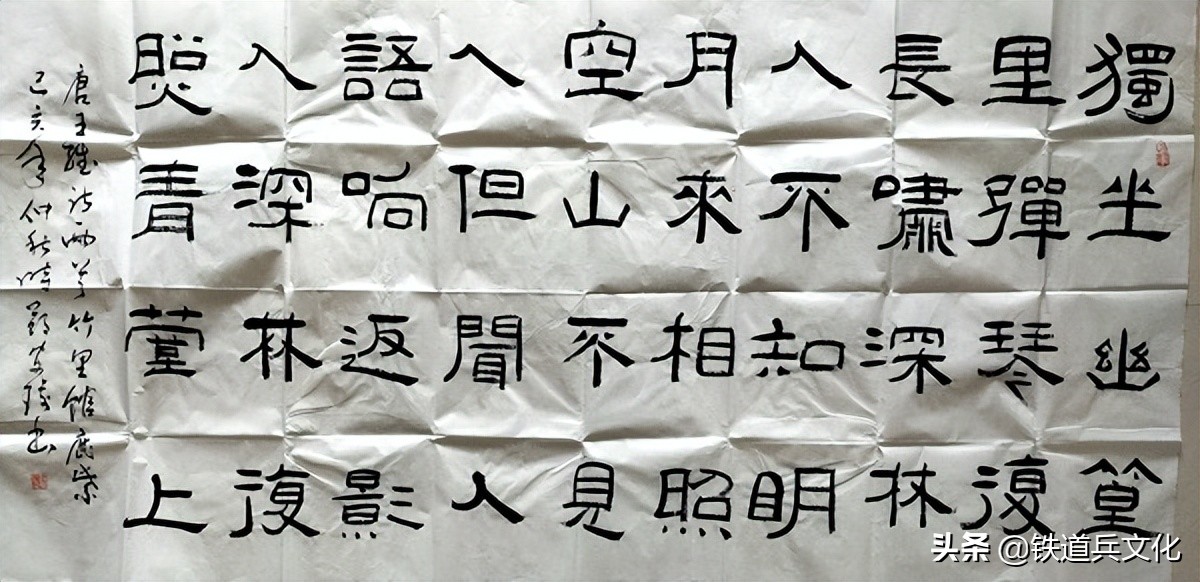 獨坐幽篁
里彈琴復
長嘯深林
人不知明
月來相照
空山不見
人但聞人
語响返影
入深林復
照青薹上
唐王維詩兩首竹里館鹿柴
己亥年仲秋時書
头条 @铁道兵文化